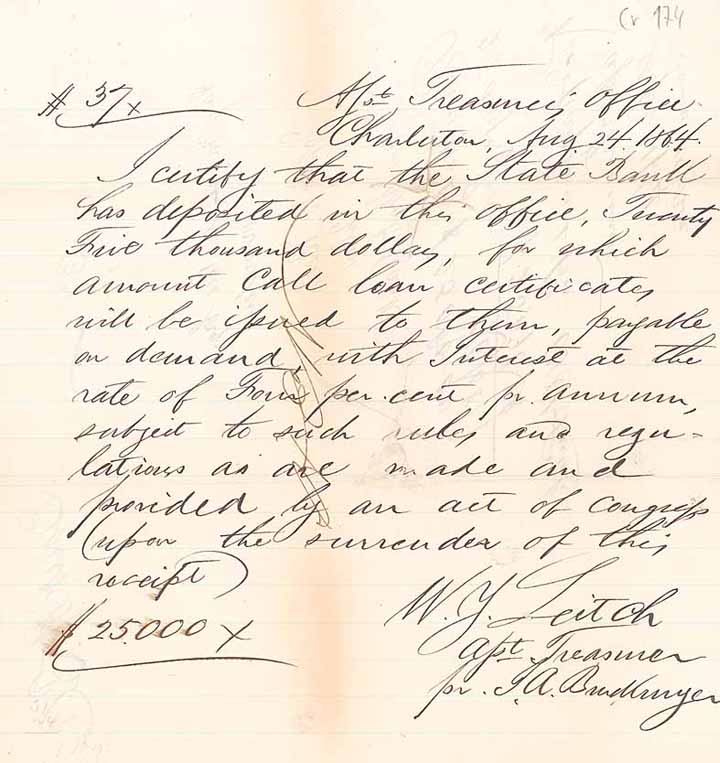 Cr 174
$ 37x
Asst Treasurers Office
Charleston, Aug 24. 1864.
I certify that the State Bank
has deposited in this office, Twenty
Five thousand dollars, for which
amount Call loan certificates
will be issued to them, payable
on demand, with Interest at the
rate of Four per. cent pr. annum,
subject to such rules and regu-
lations as are made and
provided by an act of Congress
(upon the surrender of this
receipt)
$ 25.000 x
W. Y. Leitch
Asst Treasurer
pr.